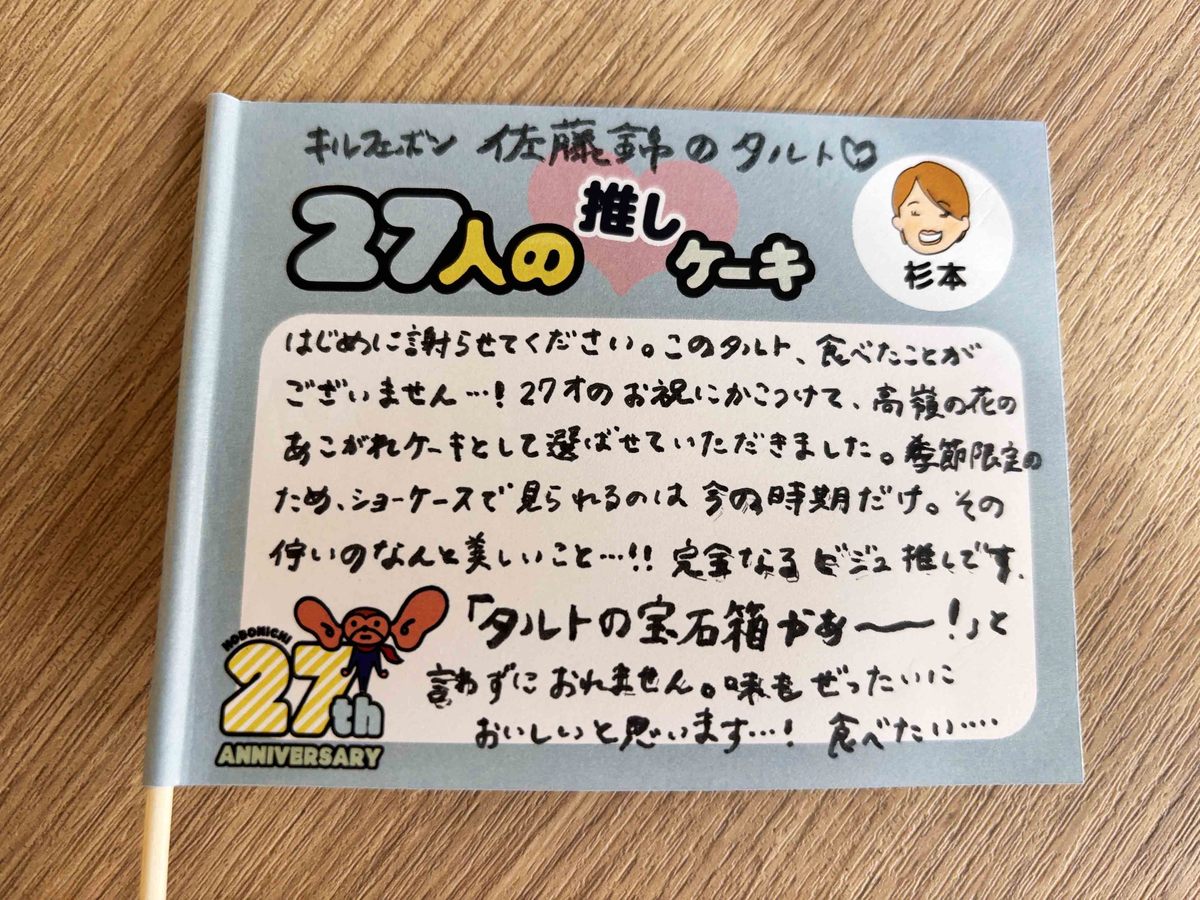 キルフェボン 佐藤錦のタルト♡
27人の推しケーキ
杉本
はじめに謝らせてください。このタルト、食べたことが
ございません…！27才のお祝にかこつけて、高嶺の花の
あこがれケーキとして選ばせていただきました。季節限定の
ため、ショーケースで見られるのは今の時期だけ。その
佇いのなんと美しいこと…!! 完全なるビジュ推しです.
「タルトの宝石箱かぁ〜〜！」と
言わずにおれません。味もぜったいに
おいしいと思います…！食べたい….
HOBONICHI
27th
ANNIVERSARY